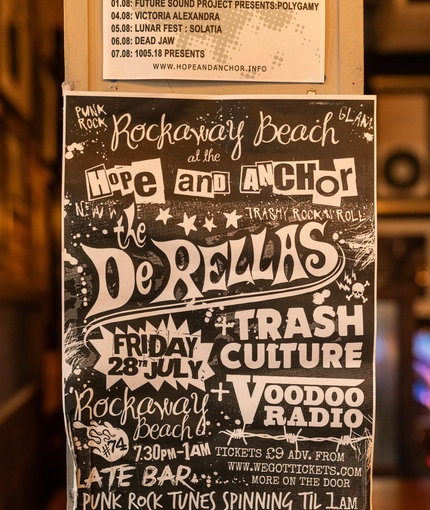 01.08: FUTURE SOUND PROJECT PRESENTS:POLYGAMY
04.08: VICTORIA ALEXANDRA
05.08: LUNAR FEST : SOLATIA
06.08: DEAD JAW
07.08: 1005.18 PRESENTS
WWW.HOPEANDANCHOR.INFO
PUNK ROCK
GLAM
Rockaway Beach
at the
Hope and ANCHor
N.W.W
TRASHY ROCK'N'ROLL
the
DeRELLAS
FRIDAY
28TH JULY
+TRASH
CULTURE
+VOODOO
RADIO
Rockaway
Beach
#74
7.30PM-1AM
LATE BAR
TICKETS £9 ADV. FROM
WWW.WEGOTTICKETS.COM
MORE ON THE DOOR
PUNK ROCK TUNES SPINNING TIL 1AM